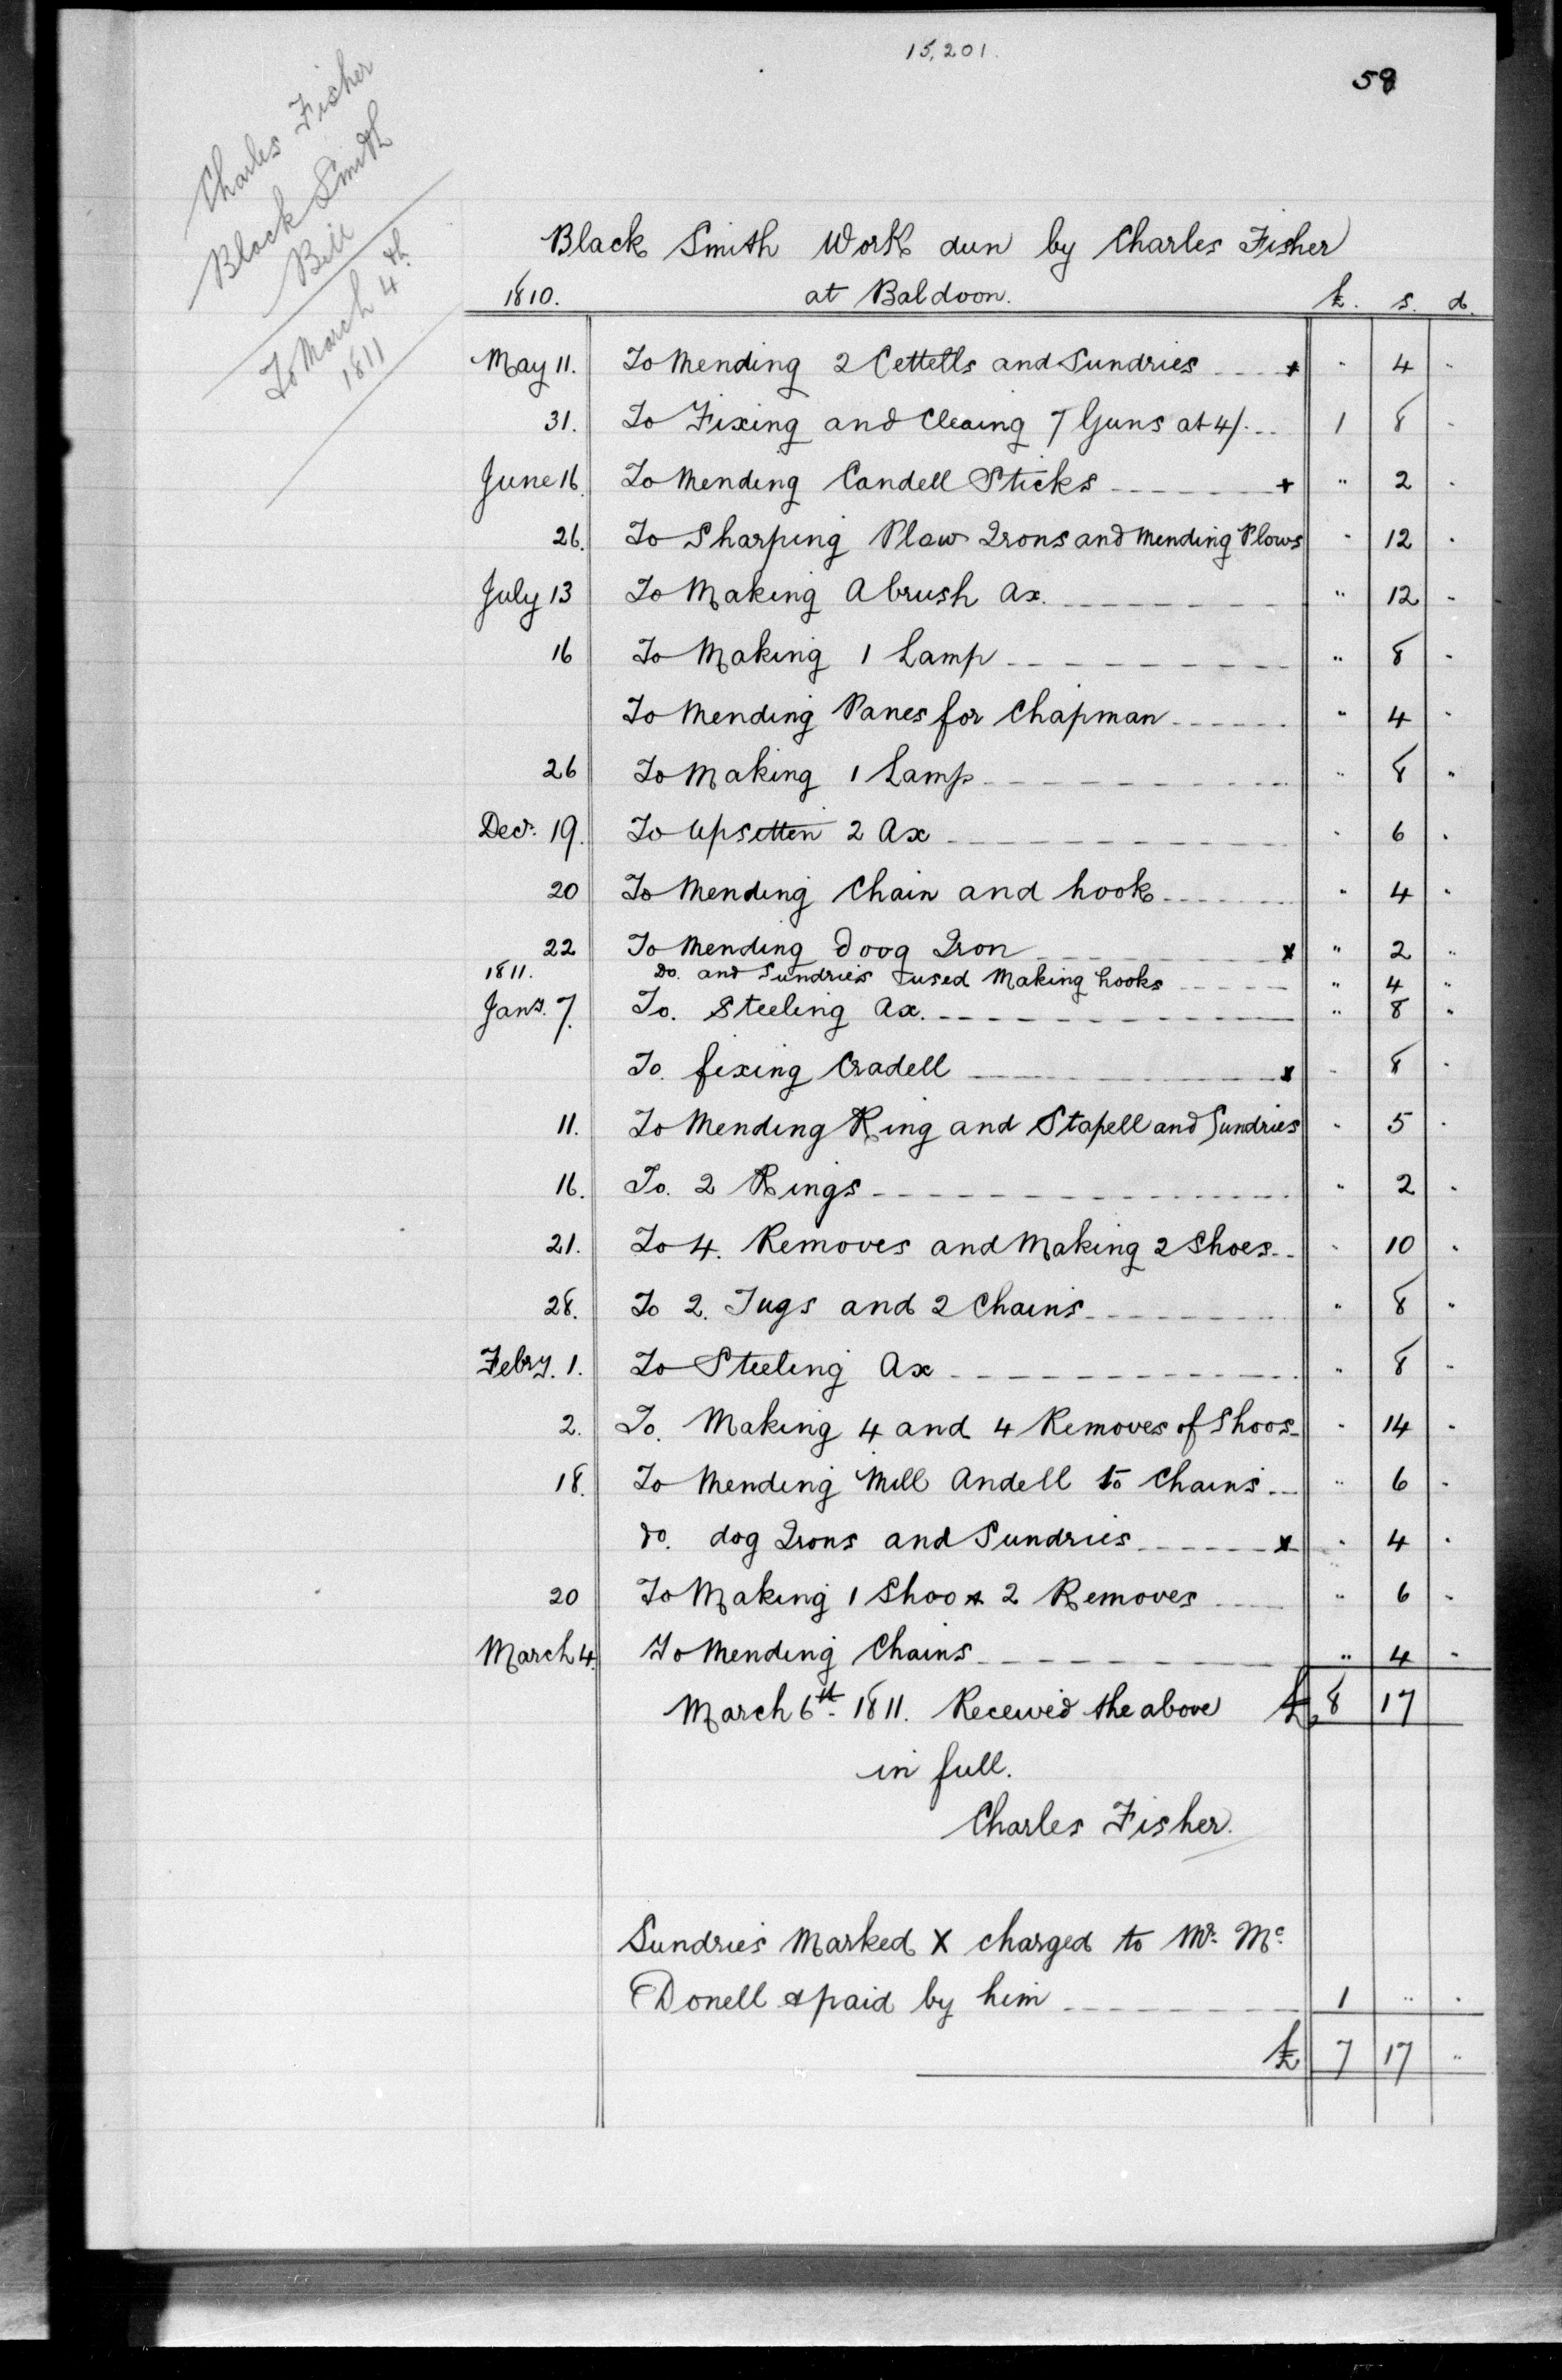 15,201.
58
Charles Fisher
Black Smith
Bill
To March 4th
1811
Black Smith Work dun by Charles Fisher
1810. at Baldoon. £. s. d.
May 11. To Mending 2 Cettells and Sundries x " 4 "
31. To Fixing and Cleaing 7 Guns at 4/. 1 8 "
June 16. To Mending Candell Sticks + " 2 "
26. To Sharping Plow Irons and Mending Plows " 12 "
July 13 To Making A brush Ax. " 12 "
16 To Making 1 Lamp " 8 "
To Mending Panes for Chapman " 4 "
26 To Making 1 Lamp " 8 "
Decr. 19. To Upsetten 2 Ax " 6 "
20 To Mending Chain and hook " 4 "
22 To Mending Doog Iron x " 2 "
1811. Do. and Sundries used Making hooks " 4 "
Jany. 7. To. Steeling Ax. " 8 "
To. fixing Cradell x " 8 "
11. To Mending Ring and Stapell and Sundries " 5 "
16. To. 2 Rings " 2 "
21. To 4. Removes and Making 2 Shoes " 10 "
28. To 2. Tugs and 2 Chains " 8 "
Febry. 1. To Steeling Ax " 8 "
2. To. Making 4 and 4 Removes of Shoos " 14 "
18. To Mending Mill Andell to Chains " 6 "
do. dog Irons and Sundries x " 4 "
20 To Making 1 Shoo & 2 Removes " 6 "
March 4. To Mending Chains " 4 "
March 6th. 1811. Received the above £ 8 17
in full.
Charles Fisher.
Sundries Marked X charged to Mr. Mc
Donell & paid by him 1 " "
£ 7 17 "